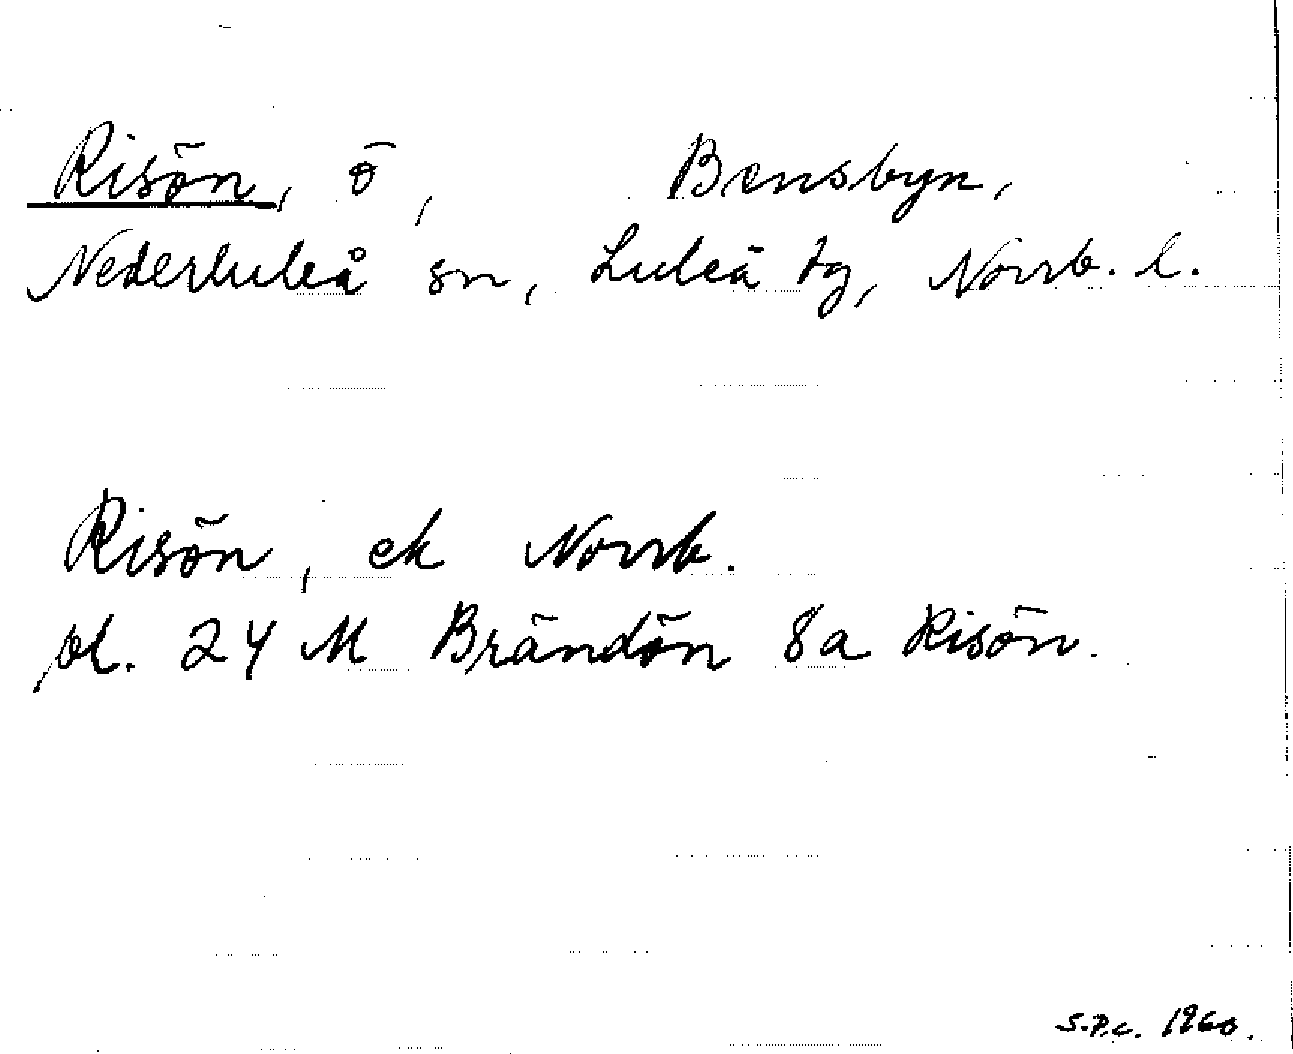 Risön, ö, Bensbyn,
Nederluleå sn, Luleå tg, Norrb. l.
Risön, ek Norrb.
pl. 24 M Brändön 8a Risön.
S.P.C. 1960.